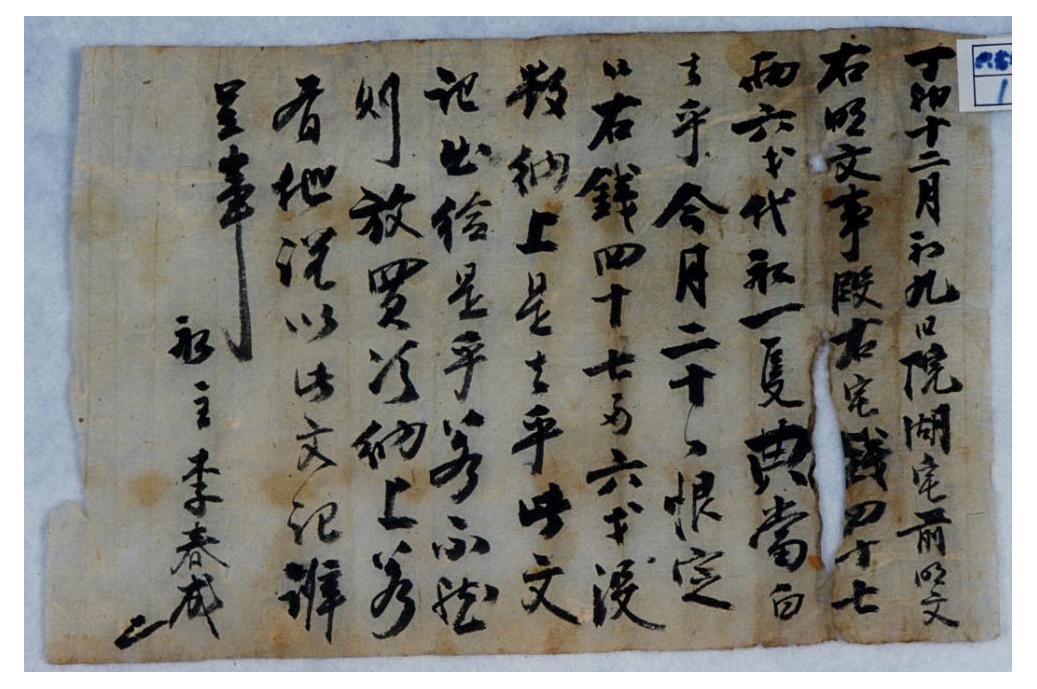 丁卯十二月初九日院湖宅前明文
右明文事段右宅錢四十七
兩六戈代舡一隻典當白
去乎今月二十日恨定
以右錢四十七兩六戈沒
數納上是去乎此文
記出給是乎若不然
則放買次納上若
有他說以此文記辨
呈事
舡主李春成